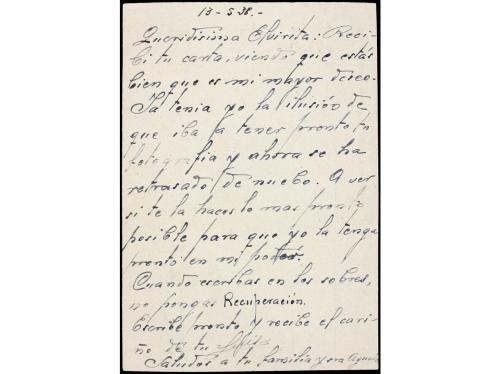 13-5-38.-
Queridisima Elvirita: Reci-
bi tu carta, viendo que estás
bien que es mi mayor deseo.
Ya tenia yo la ilusión de
que iba a tener pronto tu
fotografia y ahora se ha
retrasado de nuebo. A ver
si te la haces lo mas pronto
posible para que yo la tenga
pronto en mi poder.
Cuando escribas en los sobres,
no pongas Recuperación.
Escribe pronto y recibe el cari-
ño de tu
Saludos a tu familia y